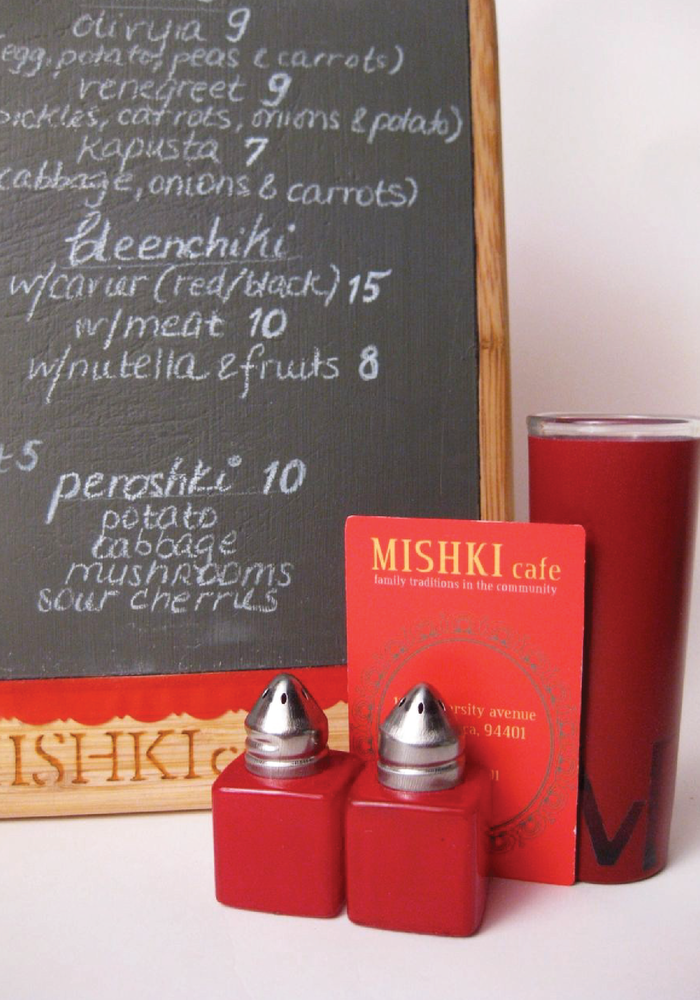 olivyia 9
egg, potato, peas & carrots)
venegreet 9
pickles, carrots, onions & potato)
kapusta 7
cabbage, onions & carrots)
bleenchiki
w/caviar (red/black) 15
w/meat 10
w/nutella & fruits 8
t 5
peroshki 10
potato
cabbage
mushrooms
sour cherries
MISHKI cafe
family traditions in the community
ersity avenue
ca. 94401
01
MISHKI c
M